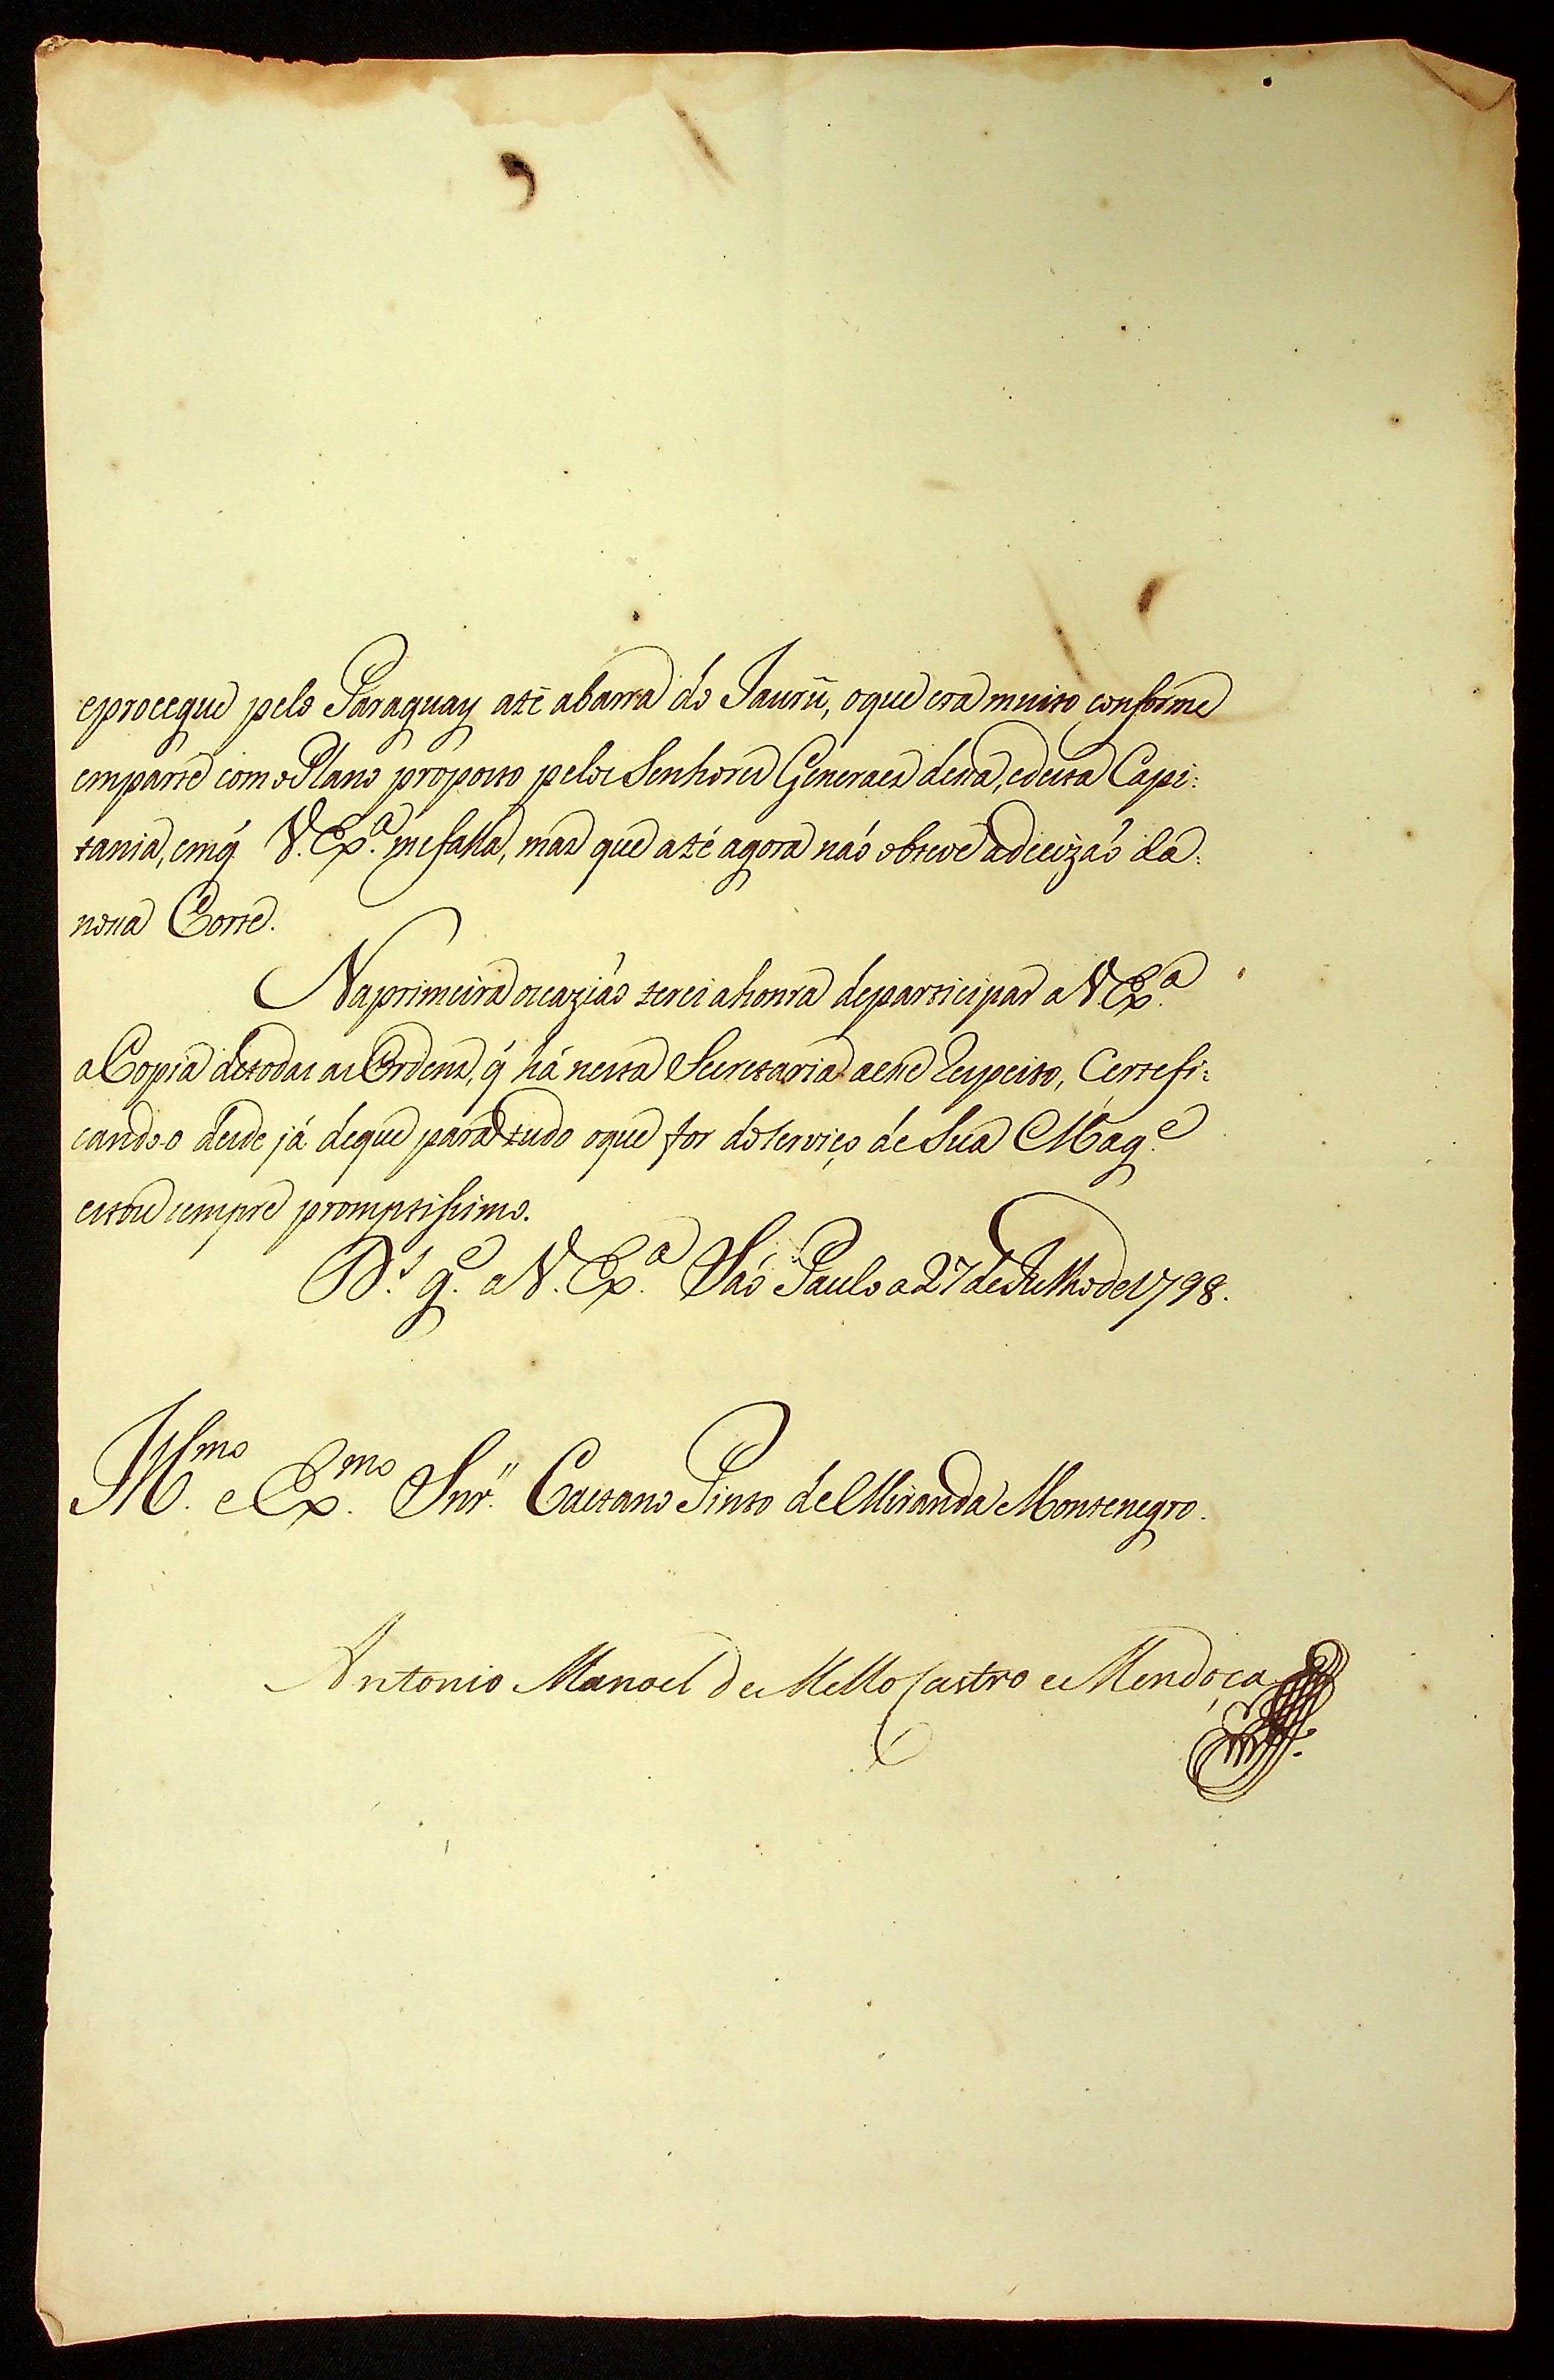 eprocegue pelo Paraguay até abarra do Jaurú, oque era muito conforme
emparte com o Plano proposto pelos Senhores Generaes dessa, edesta Capi:
tania, emq̃ V. Ex.ª mefalla, mas que até agora naõ obteve adecizaõ da:
nossa Corte.
Naprimeira occaziaõ terei ahonra departicipar a V. Ex.ª
a Copia detodas as Ordens, q̃ há nesta Secretaria aeste Respeito, Certefi:
cando-o desde já deque para tudo oque for doserviço de Sua Mag.e
estou sempre promptissimo.
D.s g.e a V. Ex.ª Saõ Paulo a 27 de Julho de 1798.
Ill.mo e Ex.mo Snr.'' Caetano Pinto de Miranda Montenegro.
Antonio Manoel de Mello Castro e Mendoça